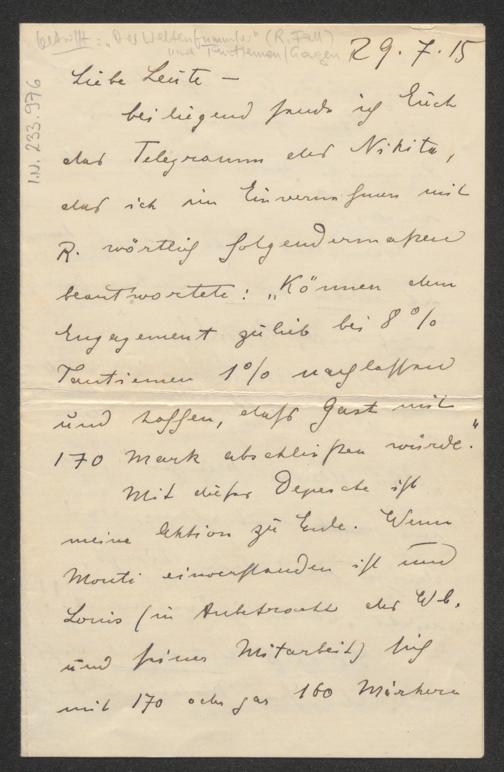 betrifft: "Der Weltenbummler" (R. Fall)
und Tantiemen/Gagen
29.7.15
I.N. 233.976
Liebe Leute –
beiliegend sende ich Euch
das Telegramm der Nikita,
das ich im Einvernehmen mit
R. wörtlich folgendermaßen
beantwortete: „Können dem
Engagement zulieb bei 8%
Tantiemen 1% nachlassen
und hoffen, dass Gast mit
170 Mark abschließen würde."
Mit dieser Depesche ist
meine Aktion zu Ende. Wenn
Monti einverstanden ist und
Louis (in Anbetracht der Wb.
und seiner Mitarbeit) sich
mit 170 oder gar 160 Märkern